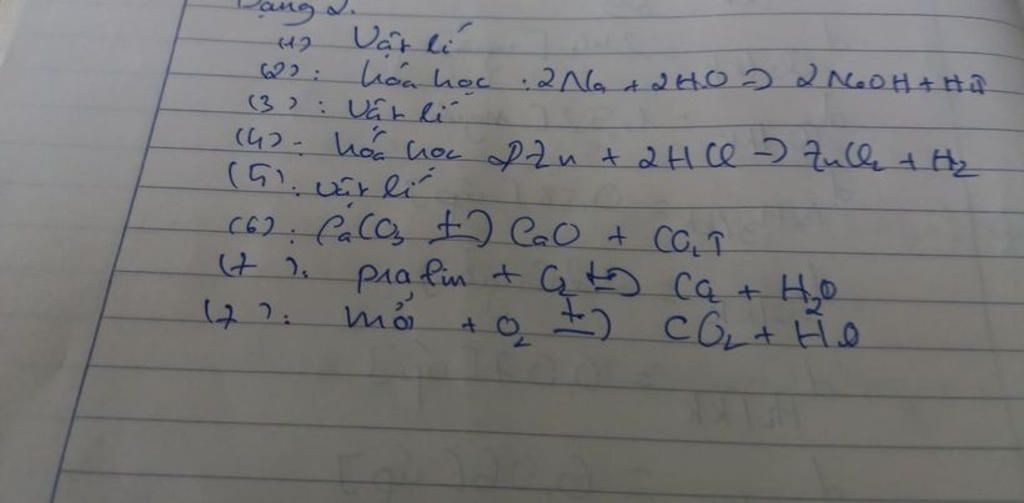 Dạng 2.
(1) Vật lí
(2): hóa học : 2Na + 2HO => 2NaOH + H↑
(3): Vật lí
(4): hóa học Zn + 2HCl => ZnCl2 + H2
(5): vật lí
(6): CaCO3 t=> CaO + CO2↑
(7): prafin + O2 t=> CO2 + H2O
(7): mỡ + O2 t=> CO2 + H2O